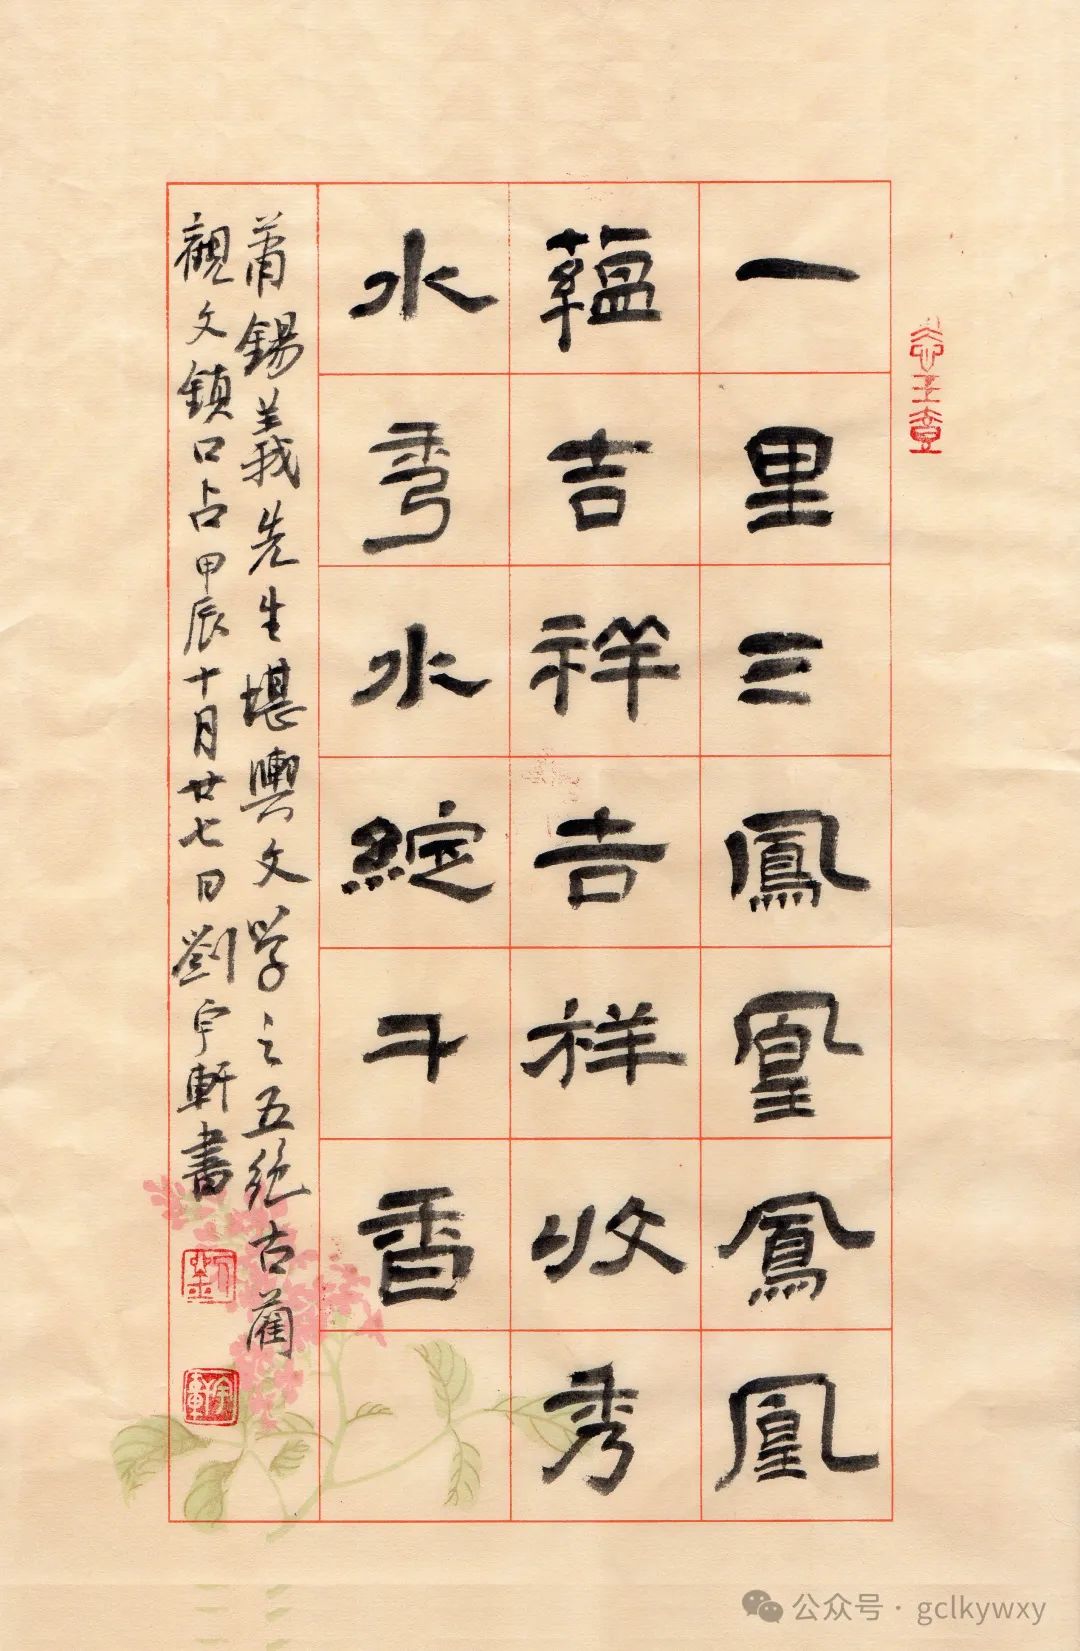 一里三鳳凰鳳凰
蘊吉祥吉祥收秀
水秀水綻千香
蕭錫義先生堪輿文学之五絕古藺
觀文鎮口占甲辰十月廿七日劉宇軒書
劉
公众号 · gclkywxy